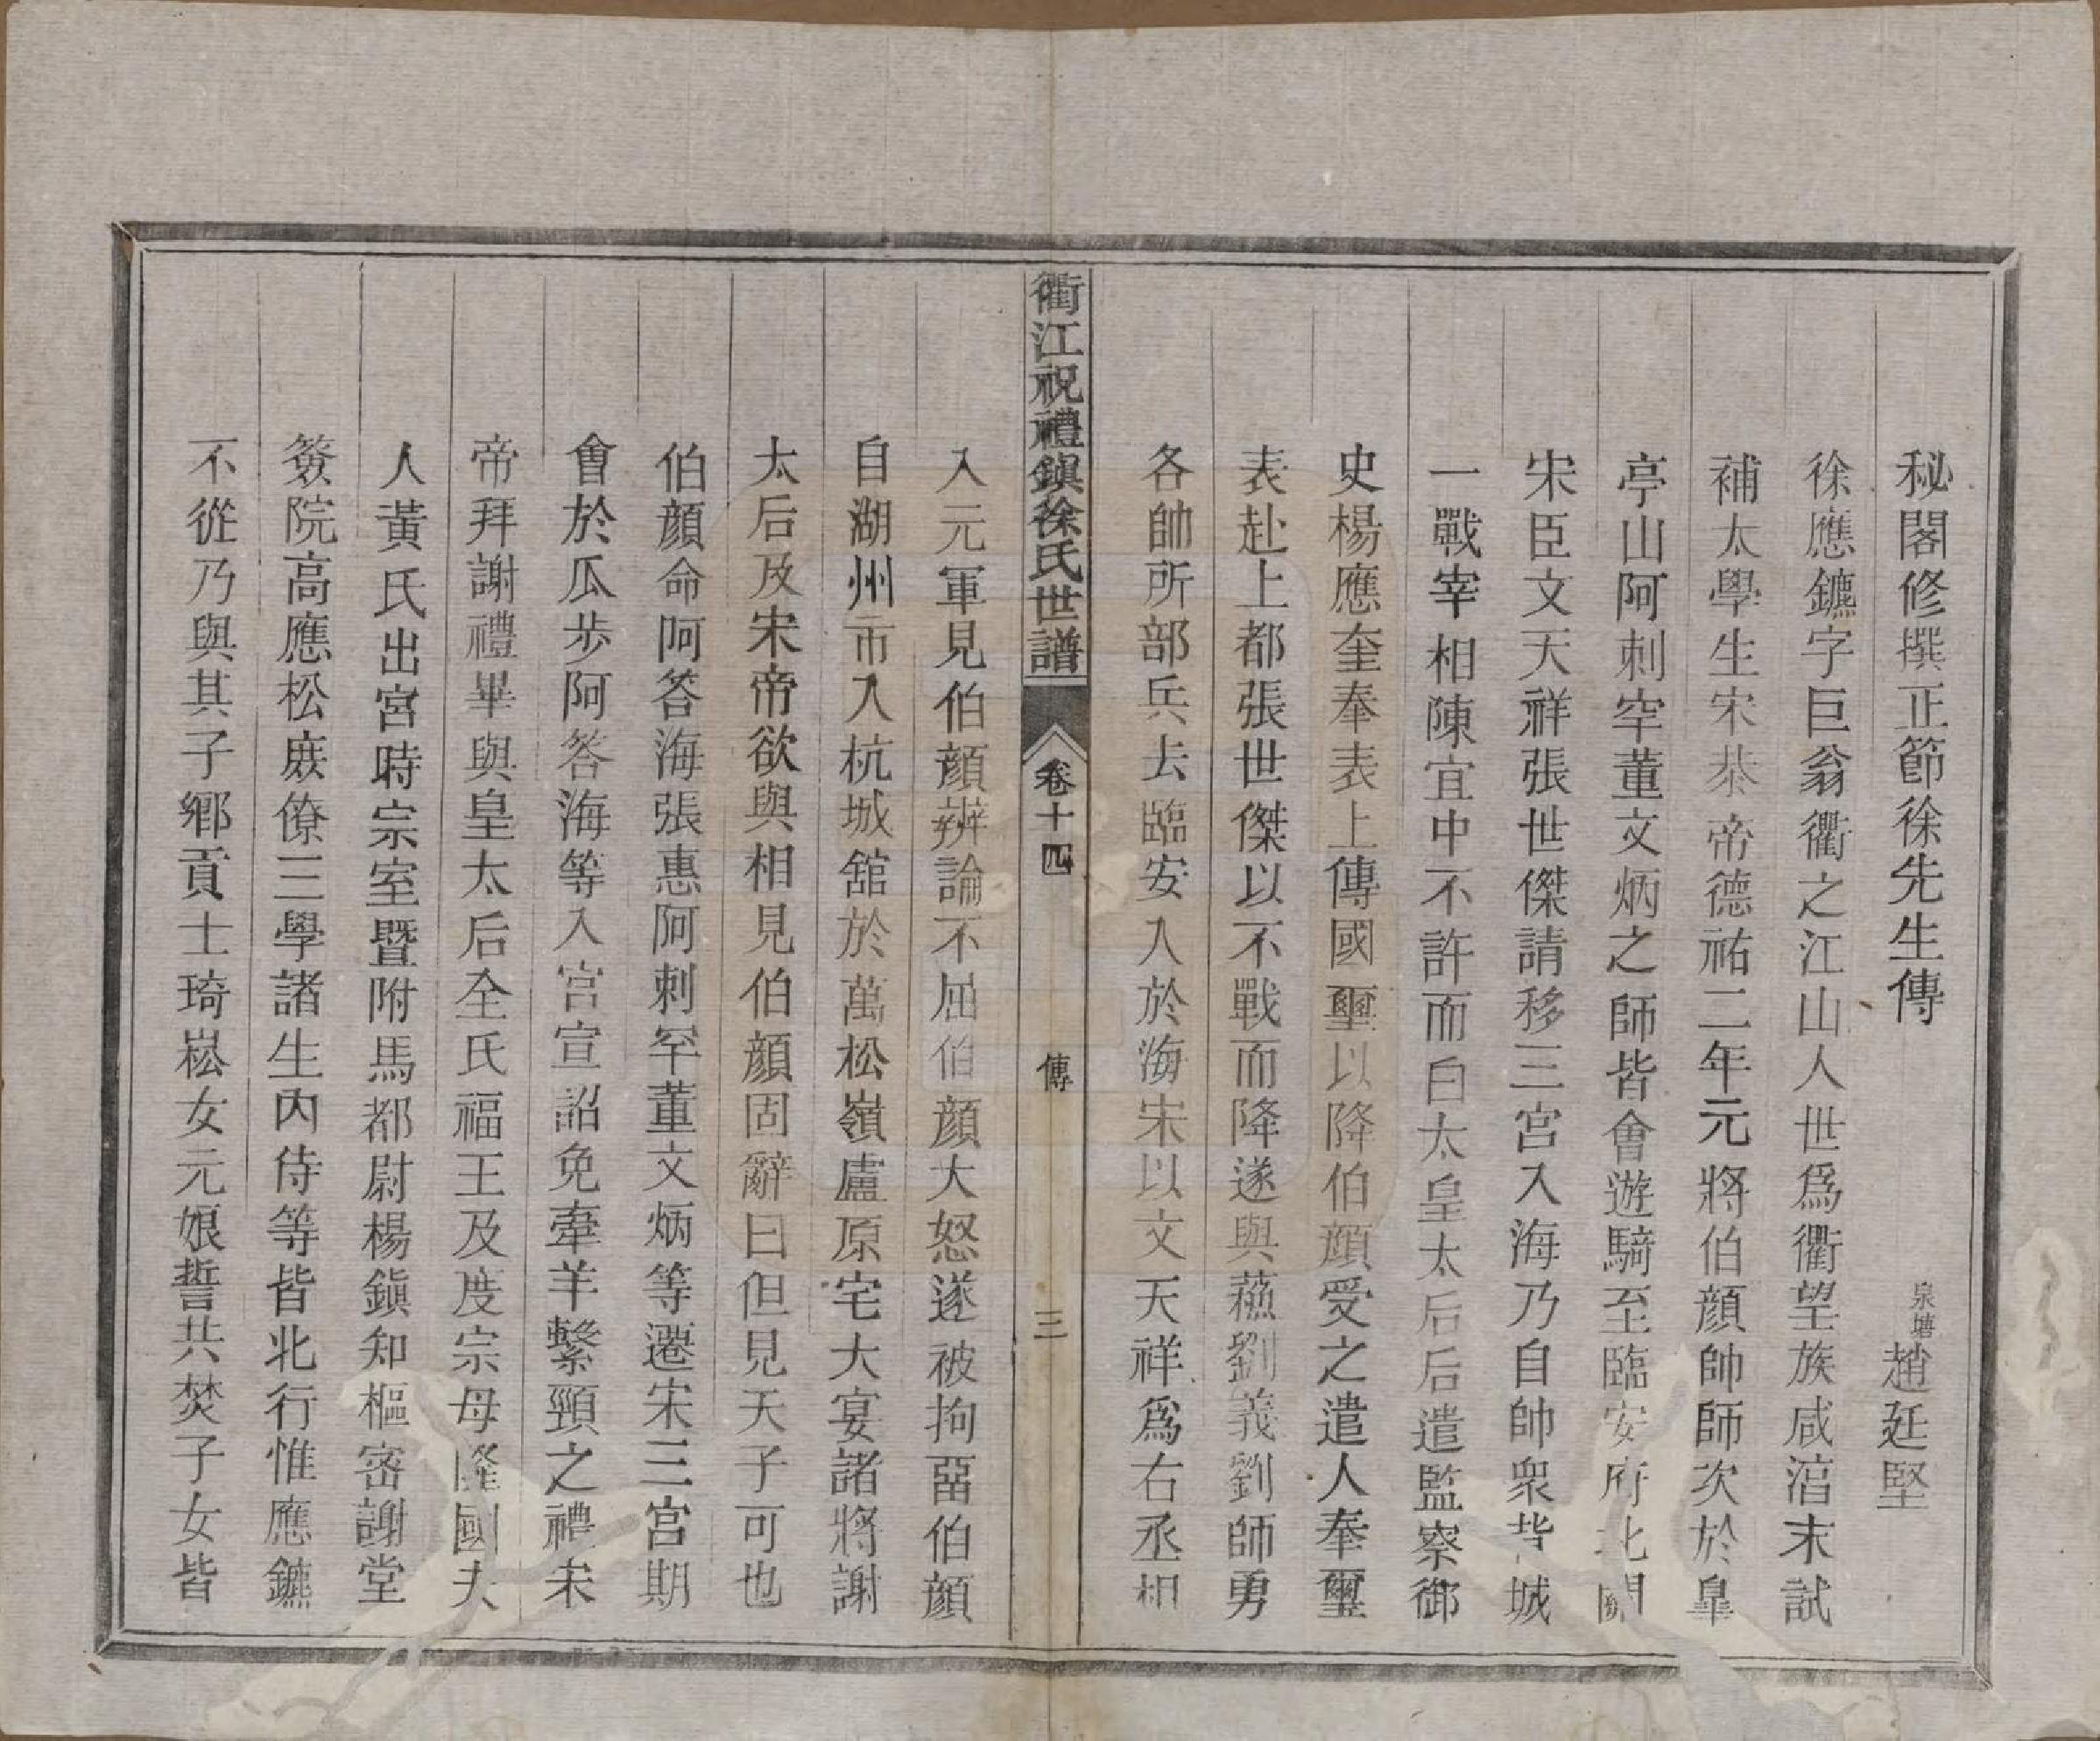 秘閣修撰正節徐先生傳
泉塘趙廷堅
徐應鑣字巨翁衢之江山人世爲衢望族咸湻末試
補太學生宋恭帝德祐二年元將伯顏帥師次於臯
亭山阿刺罕董文炳之師皆會遊騎至臨安府北關
宋臣文天祥張世傑請移三宮入海乃自帥衆背城
一戰宰相陳宜中不許而白太皇太后后遣監察御
史楊應奎奉表上傳國璽以降伯顏受之遣人奉璽
表赴上都張世傑以不戰而降遂與蘓劉義劉師勇
各帥所部兵去臨安入於海宋以文天祥爲右丞相
衢江祝禮鎭徐氏世譜
卷十四
傳
三
入元軍見伯顏辨論不屈伯顏大怒遂被拘畱伯顏
自湖州市入杭城舘於萬松嶺盧原宅大宴諸將謝
太后及宋帝欲與相見伯顏固辭曰但見天子可也
伯顏命阿答海張惠阿刺罕董文炳等遷宋三宮期
會於瓜步阿答海等入宮宣詔免牽羊繫頸之禮未
帝拜謝禮畢與皇太后全氏福王及度宗母隆國夫
人黃氏出宮時宗室暨附馬都尉楊鎭知樞密謝堂
簽院高應松庶僚三學諸生內侍等皆北行惟應鑣
不從乃與其子鄉貢士琦崧女元娘誓共焚子女皆